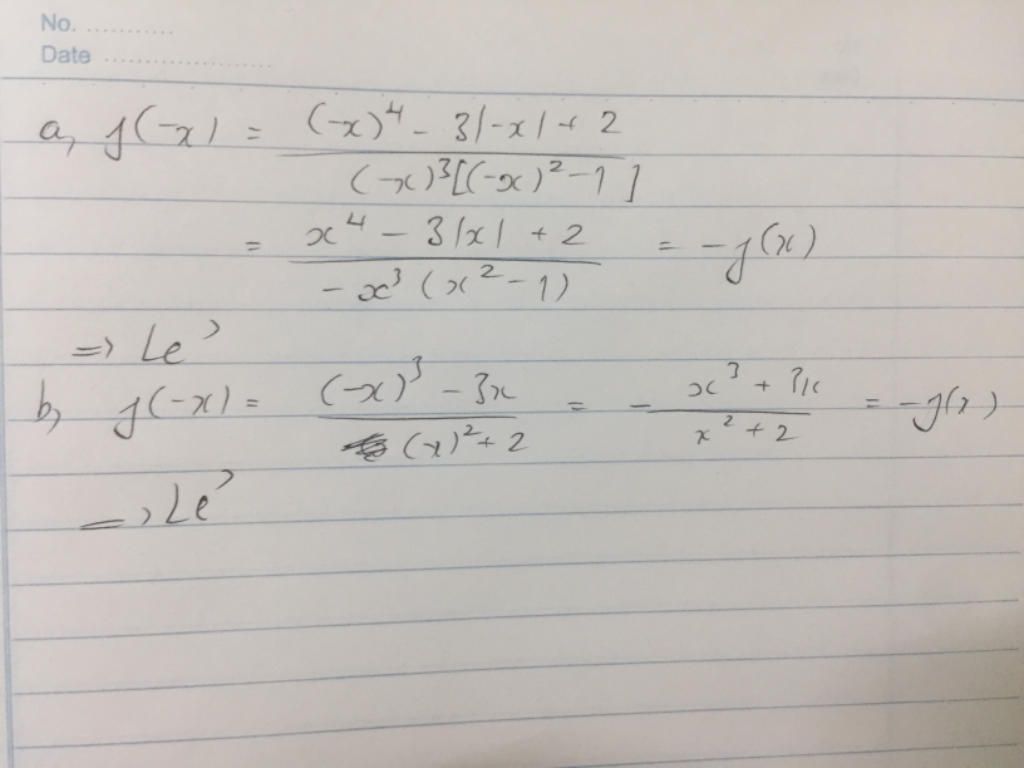 No. ............
Date ......................
a, f(-x) = \frac{(-x)^4 - 3|-x| + 2}{(-x)^3[(-x)^2 - 1]}
= \frac{x^4 - 3|x| + 2}{-x^3 (x^2 - 1)} = -f(x)
=> Lẻ
b, f(-x) = \frac{(-x)^3 - 3x}{(x)^2 + 2} = - \frac{x^3 + 3x}{x^2 + 2} = -f(x)
=> Lẻ